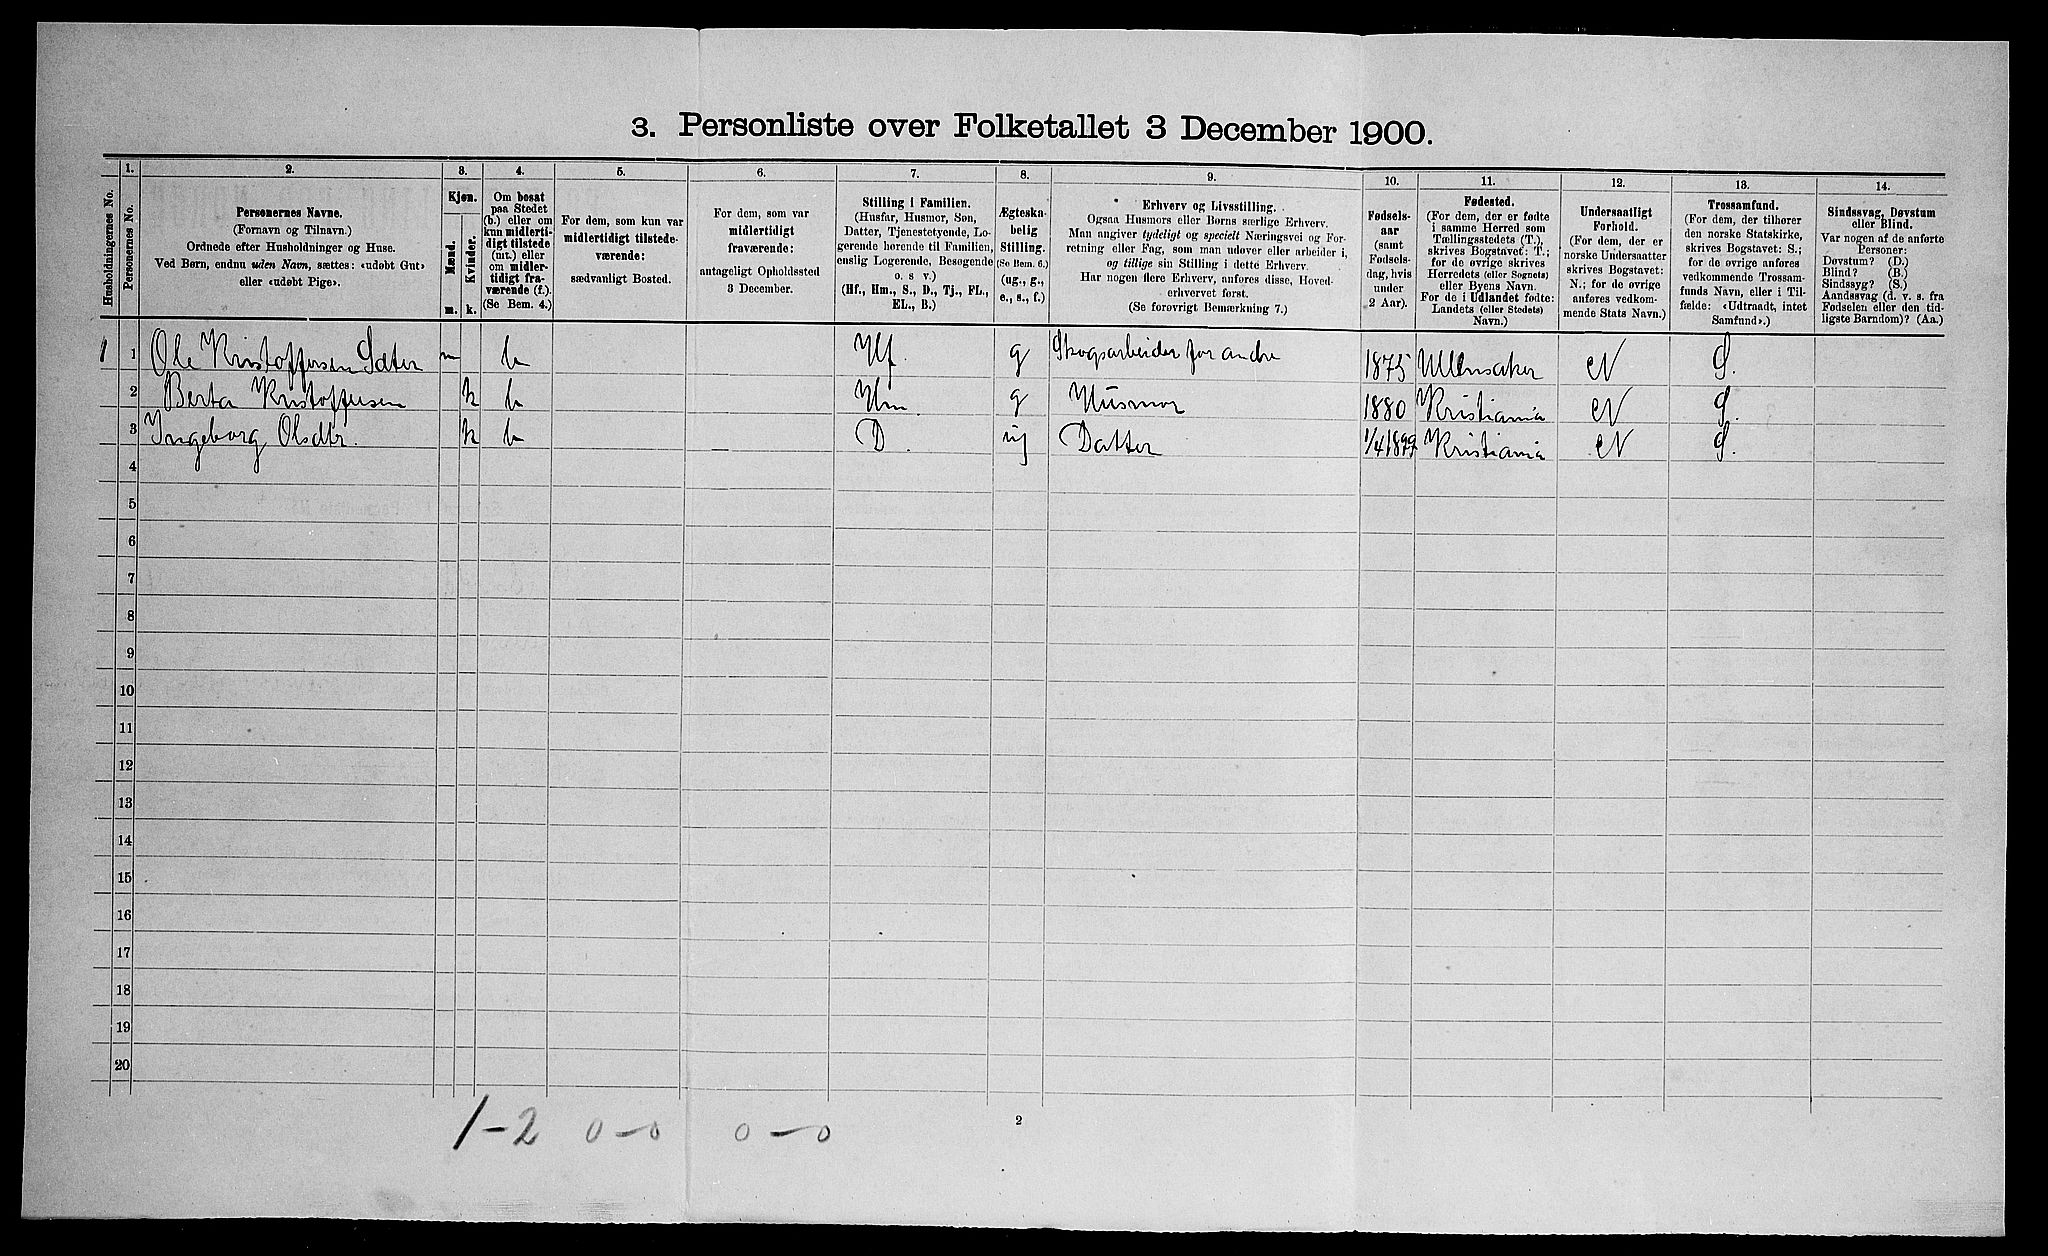 3. Personliste over Folketallet 3 December 1900.
Husholdningernes No.
1.
Personernes No.
2.
Personernes Navne.
(Fornavn og Tilnavn.)
Ordnede efter Husholdninger og Huse.
Ved Børn, endnu uden Navn, sættes: «udøbt Gut»
eller «udøbt Pige».
3.
Kjøn.
Mænd.
Kvinder.
m. k.
4.
Om bosat
paa Stedet
(b.) eller om
kun midlerti-
digt tilstede
(mt.) eller
om midler-
tidigt fra-
værende (f.).
(Se Bem. 4.)
5.
For dem, som kun var
midlertidigt tilstede-
værende:
sædvanligt Bosted.
6.
For dem, som var
midlertidigt
fraværende:
antageligt Opholdssted
3 December.
7.
Stilling i Familien.
(Husfar, Husmor, Søn,
Datter, Tjenestetyende, Lo-
gerende hørende til Familien,
enslig Logerende, Besøgende
o. s v.)
(Hf., Hm., S., D., Tj., FL.,
EL., B.)
8.
Ægteska-
belig
Stilling.
(Se Bem. 6.)
(ug., g.,
e., s., f.)
9.
Erhverv og Livsstilling.
Ogsaa Husmors eller Børns særlige Erhverv.
Man angiver tydeligt og specielt Næringsvei og For-
retning eller Fag, som man udøver eller arbeider i,
og tillige sin Stilling i dette Erhverv.
Har nogen flere Erhverv, anføres disse, Hoved-
erhvervet først.
(Se forøvrigt Bemærkning 7.)
10.
Fødsels-
aar
(samt
Fødsels-
dag, hvis
under
2 Aar).
11.
Fødested.
(For dem, der er fødte
i samme Herred som
Tællingsstedets (T.),
skrives Bogstavet: T.;
for de øvrige skrives
Herredets (eller Sognets)
eller Byens Navn.
For de i Udlandet fødte:
Landets (eller Stedets)
Navn.)
12.
Undersaatligt
Forhold.
(For dem, der er
norske Undersaatter
skrives Bogstavet:
N.; for de øvrige
anføres vedkom-
mende Stats Navn.)
13.
Trossamfund.
(For dem, der tilhører
den norske Statskirke,
skrives Bogstavet: S.;
for de øvrige anføres
vedkommende Trossam-
funds Navn, eller i Til-
fælde: «Udtraadt, intet
Samfund».)
14.
Sindssvag, Døvstum
eller Blind.
Var nogen af de anførte
Personer:
Døvstum? (D.)
Blind? (B.)
Sindssyg? (S.)
Aandssvag (d. v. s. fra
Fødselen eller den tid-
ligste Barndom)? (Aa.)
1 1 Ole Kristoffersen Sæter m b Hf. g Skogsarbeider for andre 1875 Ullensaker N S.
2 Berta Kristoffersen k b Hm. g Husmor 1880 Kristiania N S.
3 Ingeborg Olsdtr. k b D. ug Datter 1/4 1899 Kristiania N S.
4
5
6
7
8
9
10
11
12
13
14
15
16
17
18
19
20
1-2 0-0 0-0
2